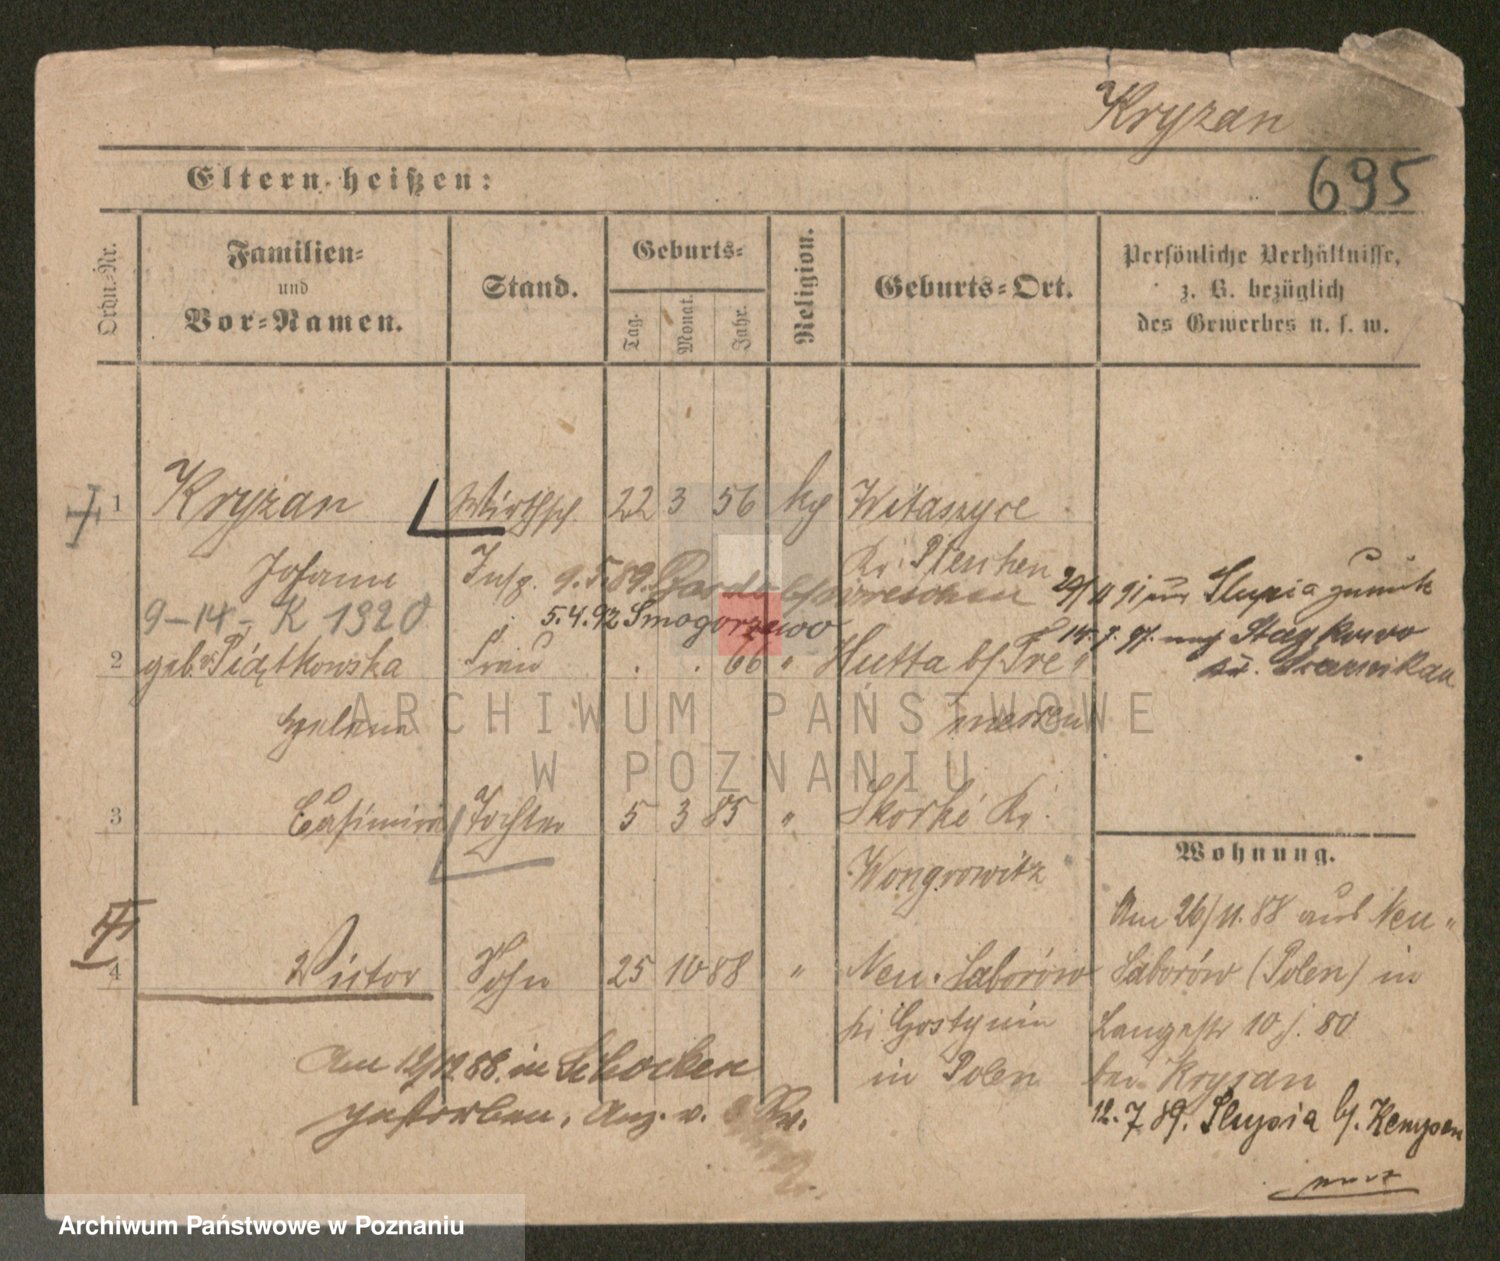 Kryzan
695
Eltern heißen:
Ordn.-Nr.
Familien- und Vor-Namen.
Stand.
Geburts-
Tag.
Monat.
Jahr.
Religion.
Geburts-Ort.
Persönliche Verhältnisse,
z. B. bezüglich
des Gewerbes u. s. w.
1 Kryzan Wirthsch. 22 3 56 kg Witaszyce
Johann Insp. 9.5.89. Kr. Pleschen
29/11 91 Slupia zurück
9-14- K 1920
5.4.92 Smogorzewo
2 geb. Piątkowska Frau 66 " Hutta b/ Tre
messen
3 Casimira Tochter 5 3 85 " Skorki Kr.
Wongrowitz
4 Victor Sohn 25 10 88 " Neu-Laborów
Gostynin
in Polen
Am 12/12 88. in Schocken
gestorben, Anz. v.
Wohnung.
Am 26/11. 88 aus Neu-
Laborów (Polen) in
Langestr 10 j. 80
bei Kryzan
12.7.89. Slupia b/. Kempen
ARCHIWUM PAŃSTWOWE
W POZNANIU
Archiwum Państwowe w Poznaniu